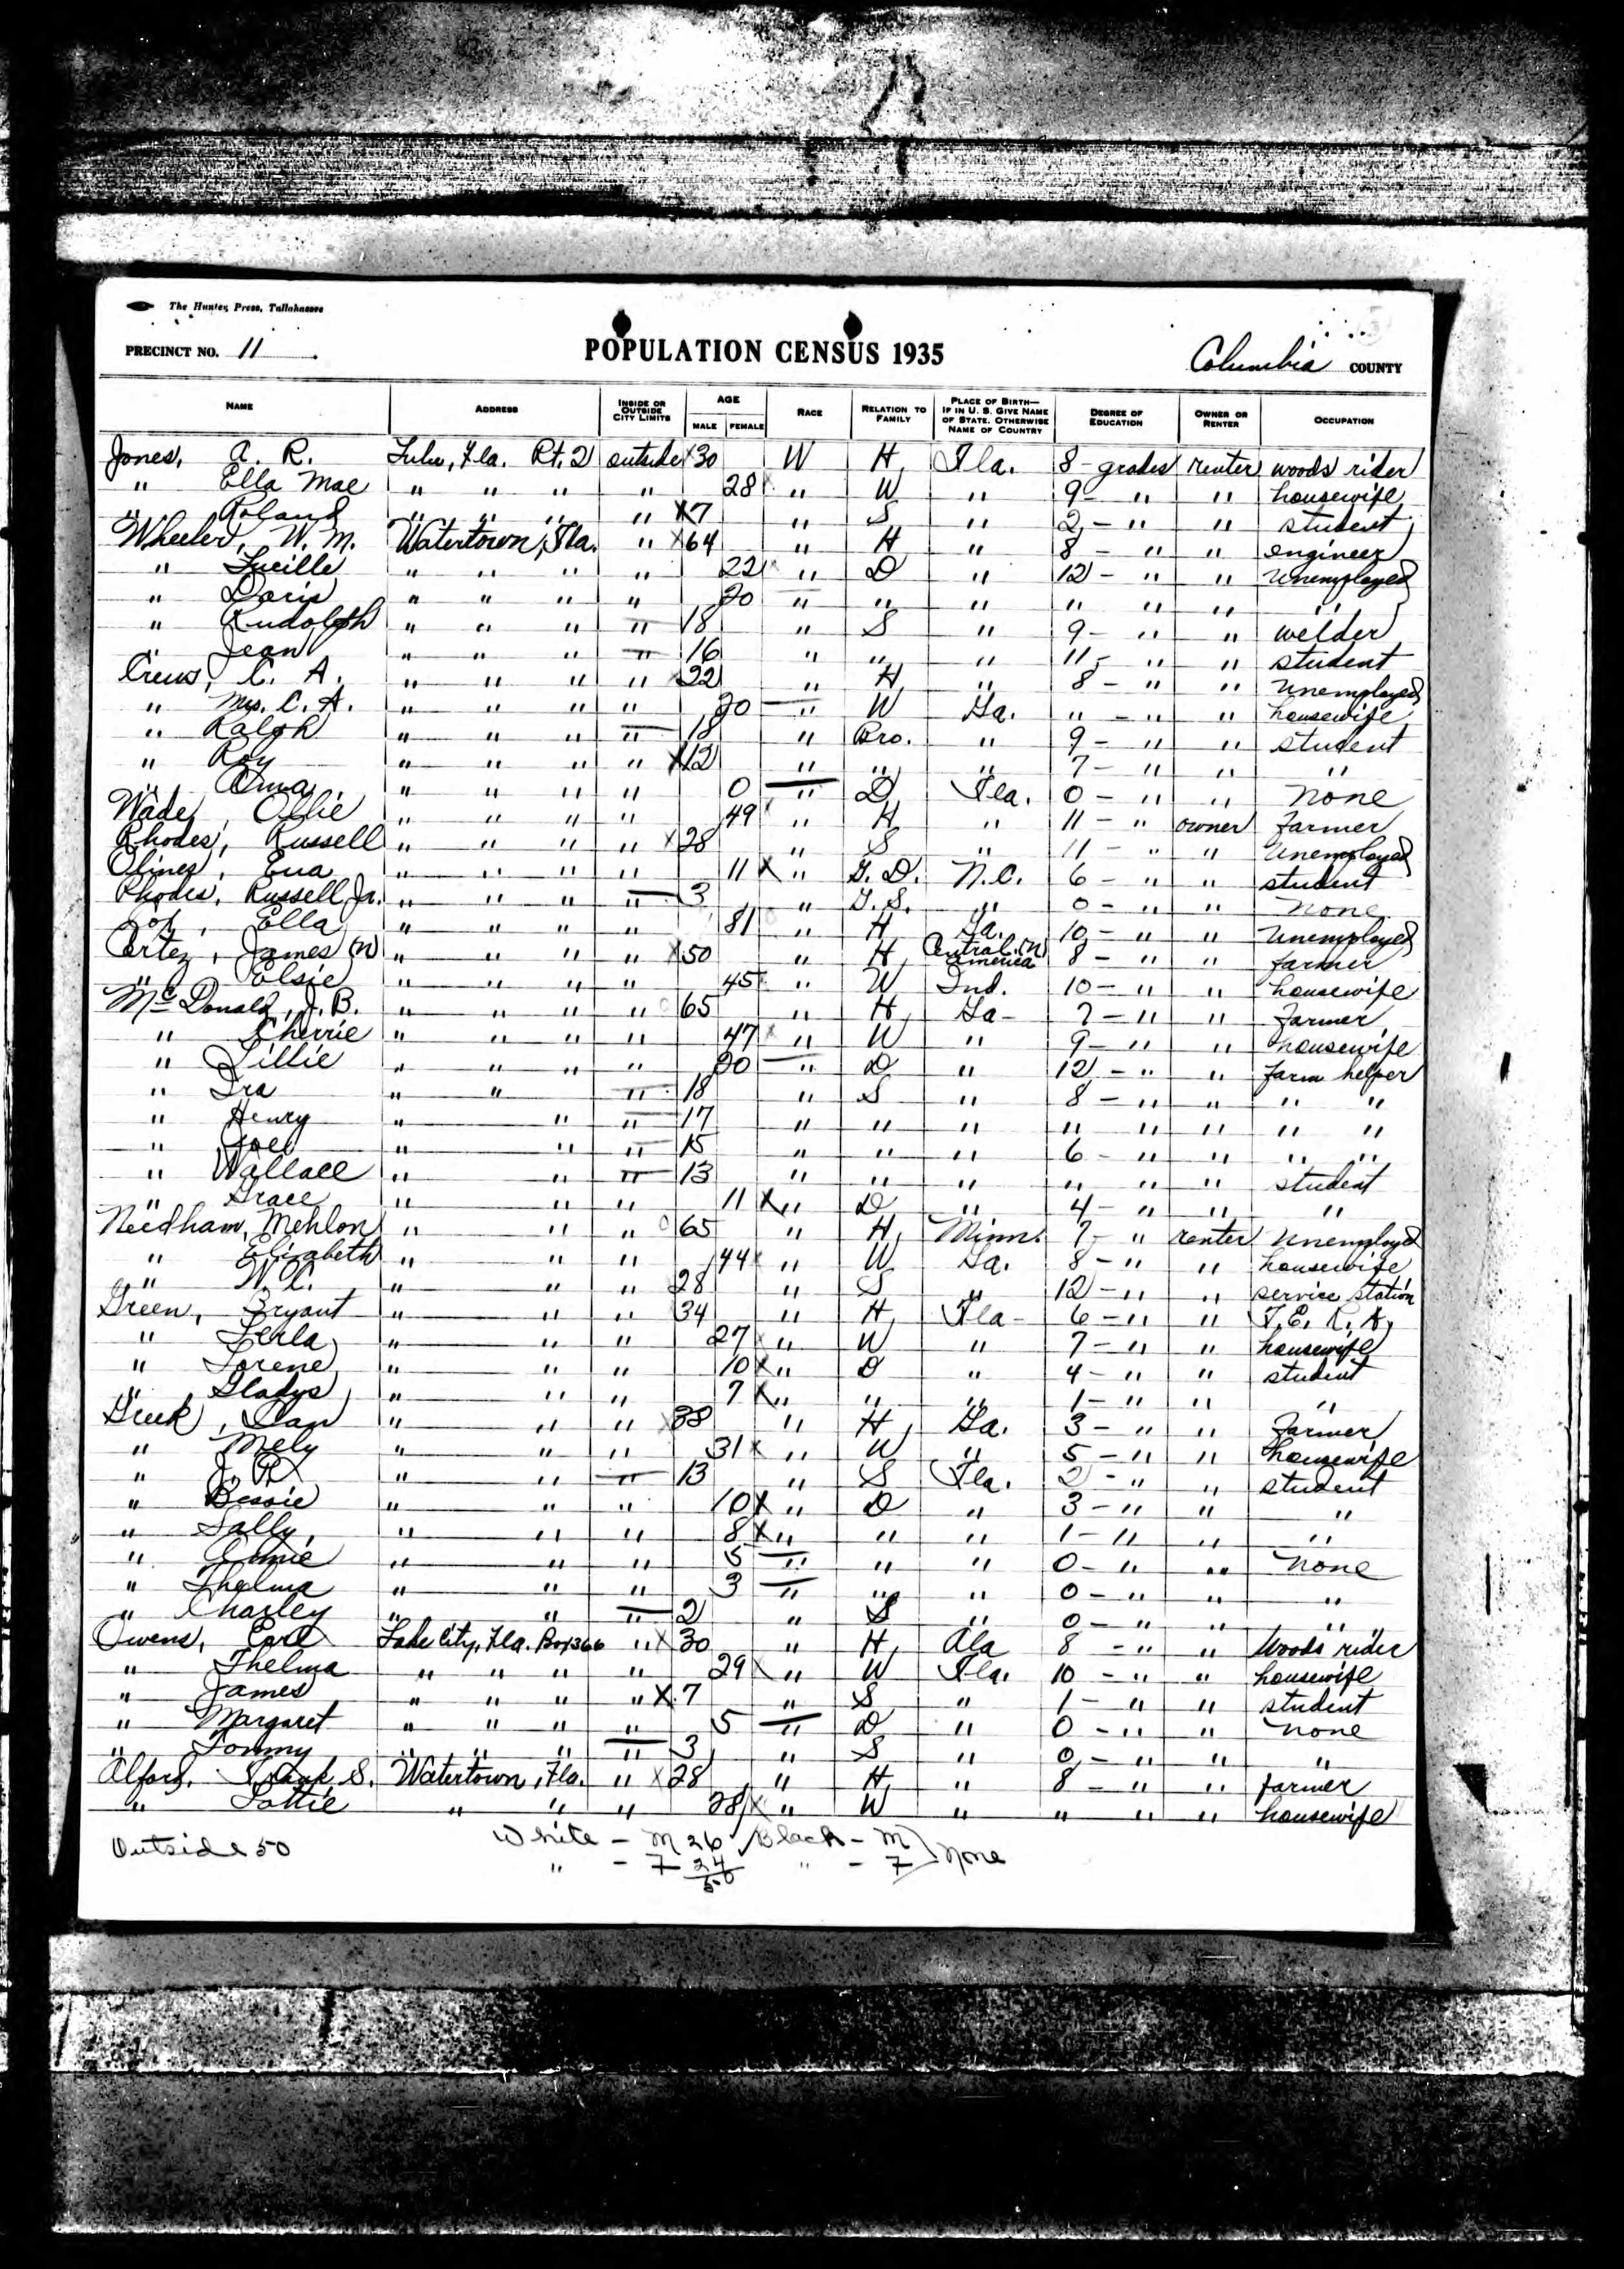 The Hunter Press, Tallahassee
PRECINCT NO. 11
POPULATION CENSUS 1935
Columbia COUNTY
NAME ADDRESS INSIDE OR OUTSIDE CITY LIMITS AGE MALE FEMALE RACE RELATION TO FAMILY PLACE OF BIRTH— IF IN U. S. GIVE NAME OF STATE. OTHERWISE NAME OF COUNTRY DEGREE OF EDUCATION OWNER OR RENTER OCCUPATION
Jones, A. R. Lulu, Fla. Rt. 2 outside x 30 W H Fla. 8 - grades renter woods rider
" Ella Mae " " " " 28 x " W " 9 - " " housewife
" Roland " " " " x 7 " S " 2 - " " student
Wheeler, W. M. Watertown, Fla. " x 64 " H " 8 - " " engineer
" Lucille " " " " 22 x " D " 12 - " " Unemployed
" Doris " " " " 20 " " " " " " "
" Rudolph " " " " 18 " S " 9 - " " welder
" Jean " " " " 16 " " " 11 - " " student
Crews, C. A. " " " " x 22 " H " 8 - " " Unemployed
" Mrs. C. A. " " " " 20 " W Ga. " - " " housewife
" Ralph " " " " 18 " Bro. " 9 - " " student
" Roy " " " " x 12 " " " 7 - " " "
" " " " " 0 " D Fla. 0 - " " none
Wade, Ollie " " " " 49 x " H " 11 - " owner farmer
Rhodes, Russell " " " " x 28 " S " 11 - " " Unemployed
Olines, Eva " " " " 11 x " G. D. N.C. 6 - " " student
Rhodes, Russell Jr. " " " " 3 " G. S. " 0 - " " none
Ella " " " " 81 " H Ga. 10 - " " Unemployed
Cortez, James (N) " " " " x 50 " H Central (N) America 8 - " " farmer
" Elsie " " " " 45 x " W Ind. 10 - " " housewife
McDonald, J. B. " " " " 65 " H Ga - 7 - " " farmer
" Cherrie " " " " 47 x " W " 9 - " " housewife
" Lillie " " " " 20 " D " 12 - " " farm helper
" Ira " " " 18 " S " 8 - " " " "
" Henry " " " 17 " " " " " " " "
" Joe " " " 15 " " " 6 - " " " "
" Wallace " " " 13 " " " " " " student
" Grace " " " 11 x " D " 4 - " " "
Needham, Mehlon " " " 65 " H Minn. 7 - " renter Unemployed
" Elizabeth " " " 44 x " W Ga. 8 - " " housewife
" W. C. " " " 28 " S " 12 - " " service station
Green, Bryant " " " 34 " H Fla - 6 - " " F. E. R. A.
" Lerla " " " 27 x " W " 7 - " " housewife
" Lorene " " " 10 x " D " 4 - " " student
" Gladys " " " 7 x " " " 1 - " " "
Greek, Dan " " " x 38 " H Ga. 3 - " " farmer
" Mely " " " 31 x " W " 5 - " " housewife
" J. R. " " " 13 " S Fla. 2 - " " student
" Bessie " " " 10 x " D " 3 - " " "
" Sally " " " 8 x " " " 1 - " " "
" Annie " " " 5 " " " 0 - " " none
" Thelma " " " 3 " " " 0 - " " "
" Charley " " " 2 " S " 0 - " " "
Owens, Earl Lake City, Fla. Box 366 " x 30 " H Ala 8 - " " Woods rider
" Thelma " " " " 29 x " W Fla. 10 - " " housewife
" James " " " " x 7 " S " 1 - " " student
" Margaret " " " " 5 " D " 0 - " " none
" Tommy " " " " 3 " S " 0 - " " "
Alford, Frank S. Watertown, Fla. " x 28 " H " 8 - " " farmer
" Lottie " " " 28 x " W " " " " housewife
Outside 50
White - M 26 Black - M
" - F 24 " - F None
50